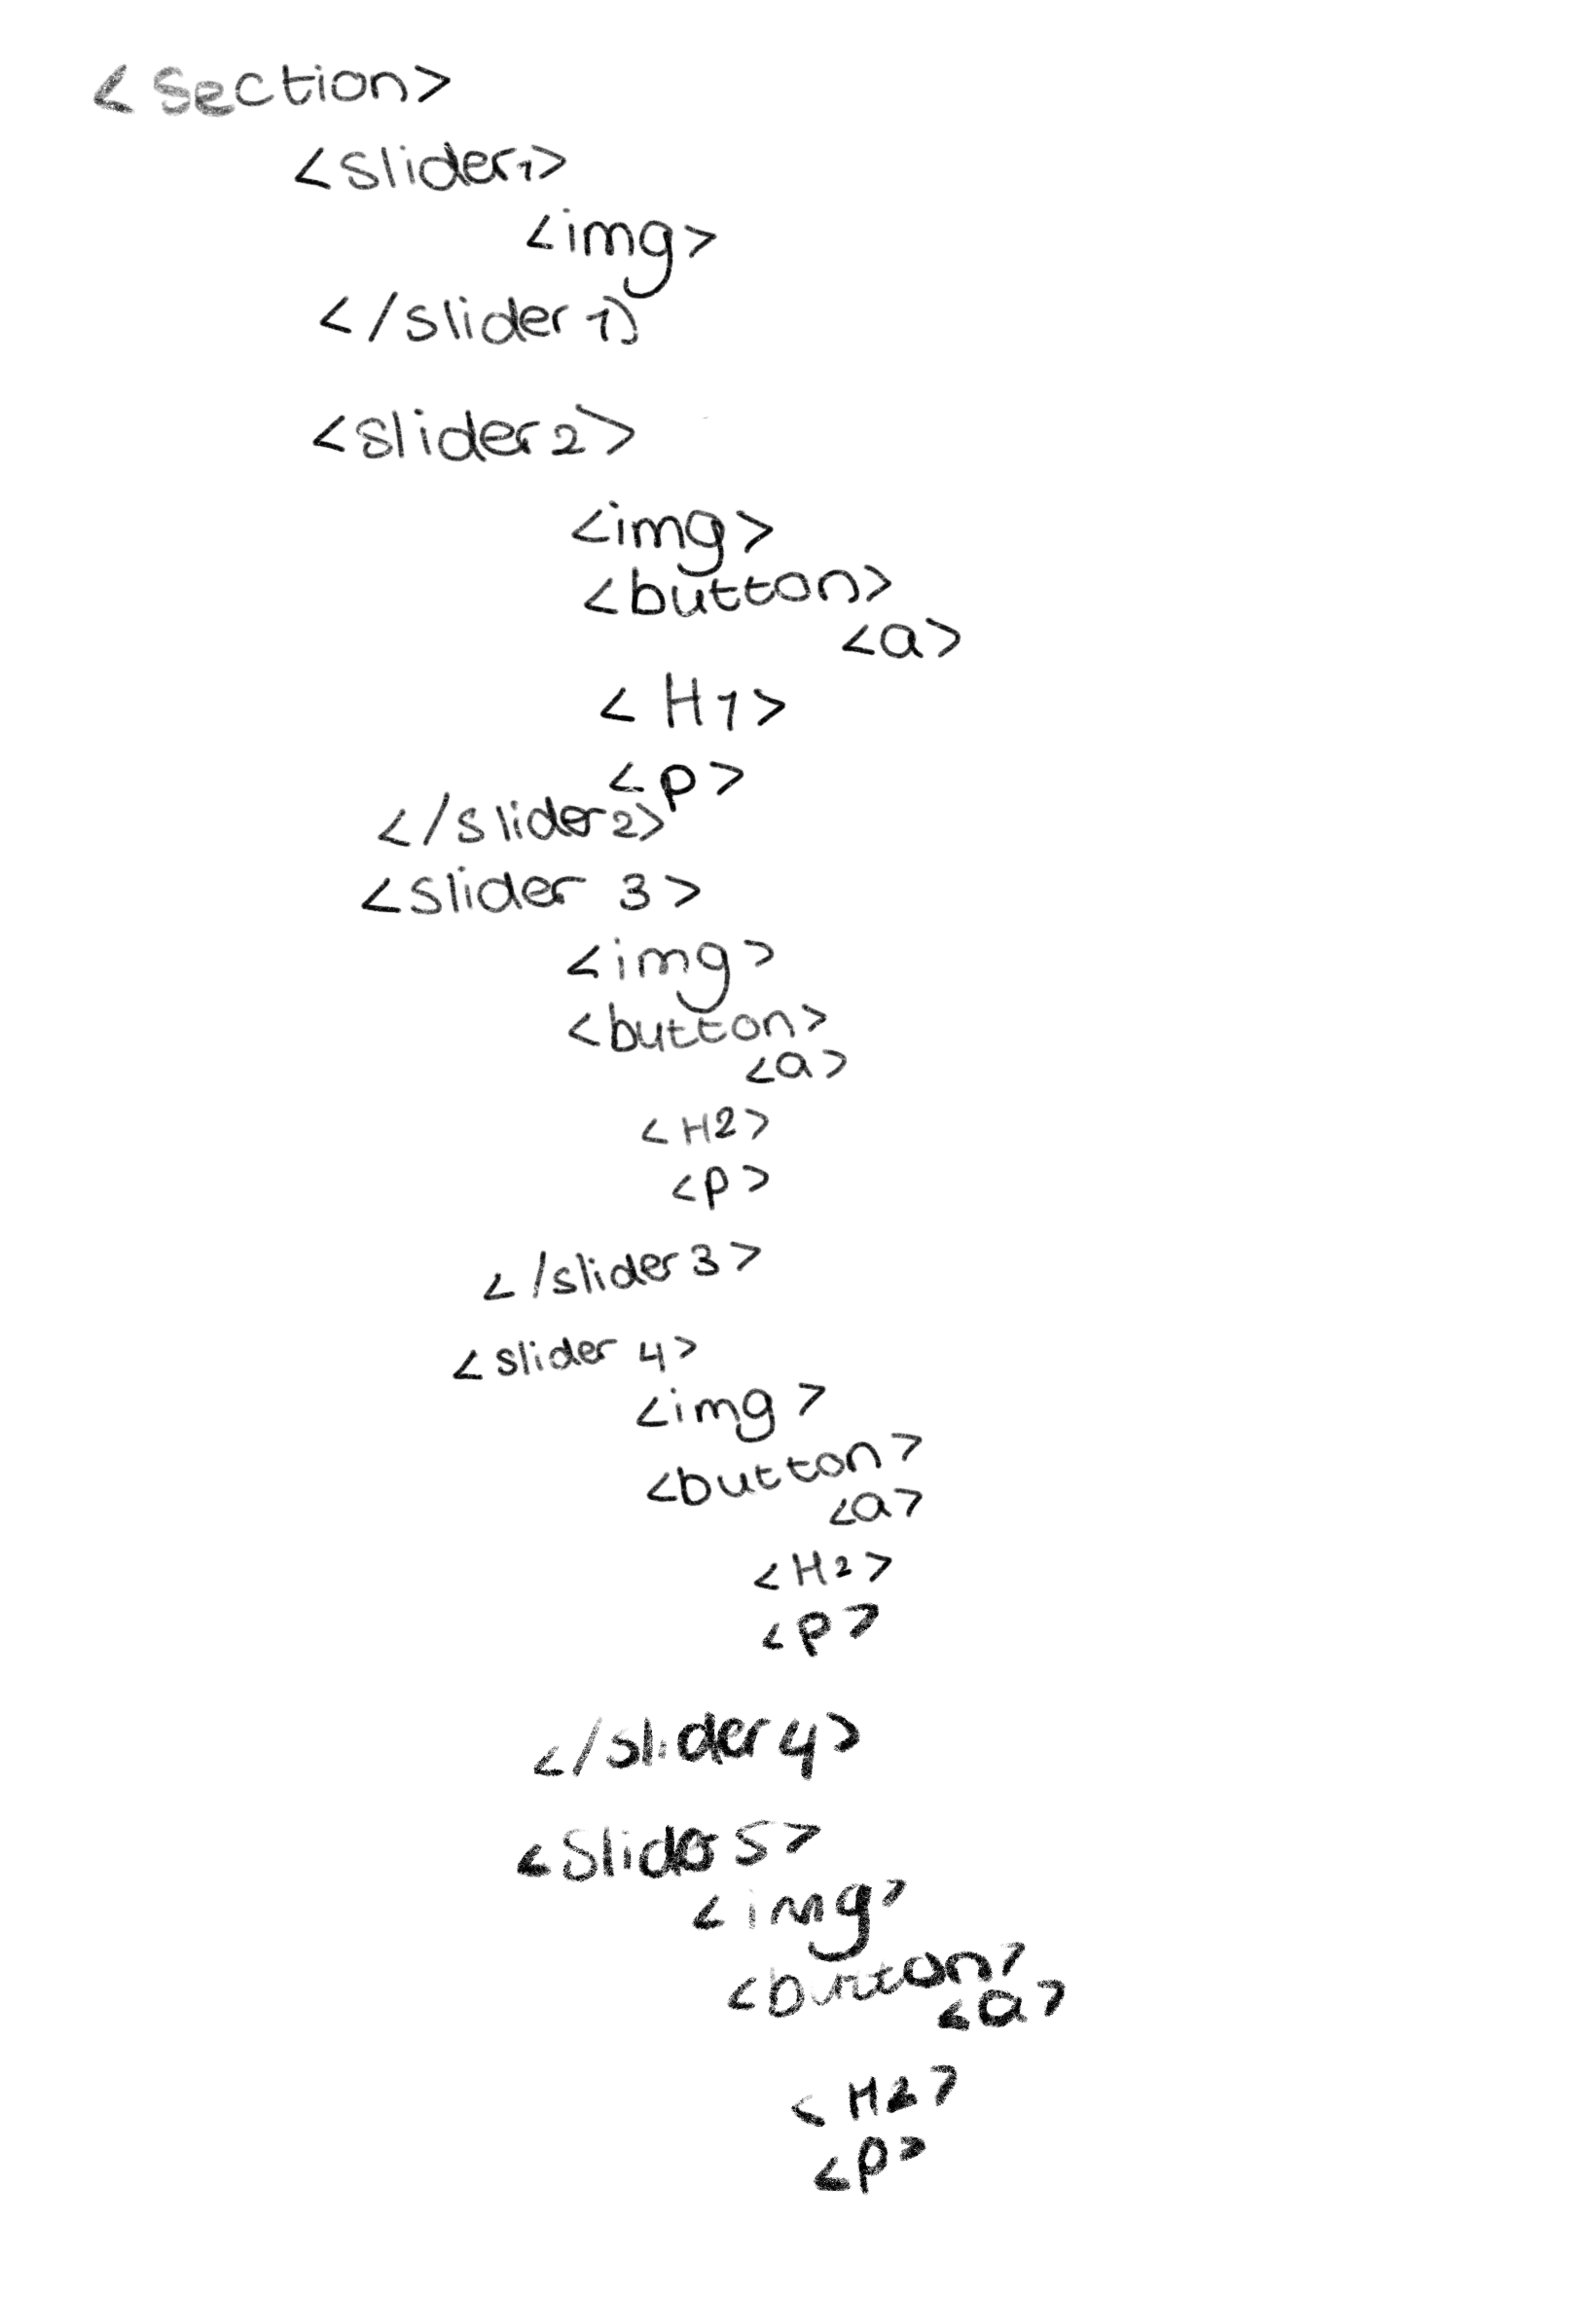 <section>
<slider1>
<img>
</slider 1)
<slider2>
<img>
<button>
<a>
<H1>
<p>
</slider2>
<slider 3>
<img>
<button>
<a>
<H2>
<p>
</slider3>
<slider 4>
<img>
<button>
<a>
<H2>
<p>
</slider4>
<Slider 5>
<img>
<button>
<a>
<H2>
<p>